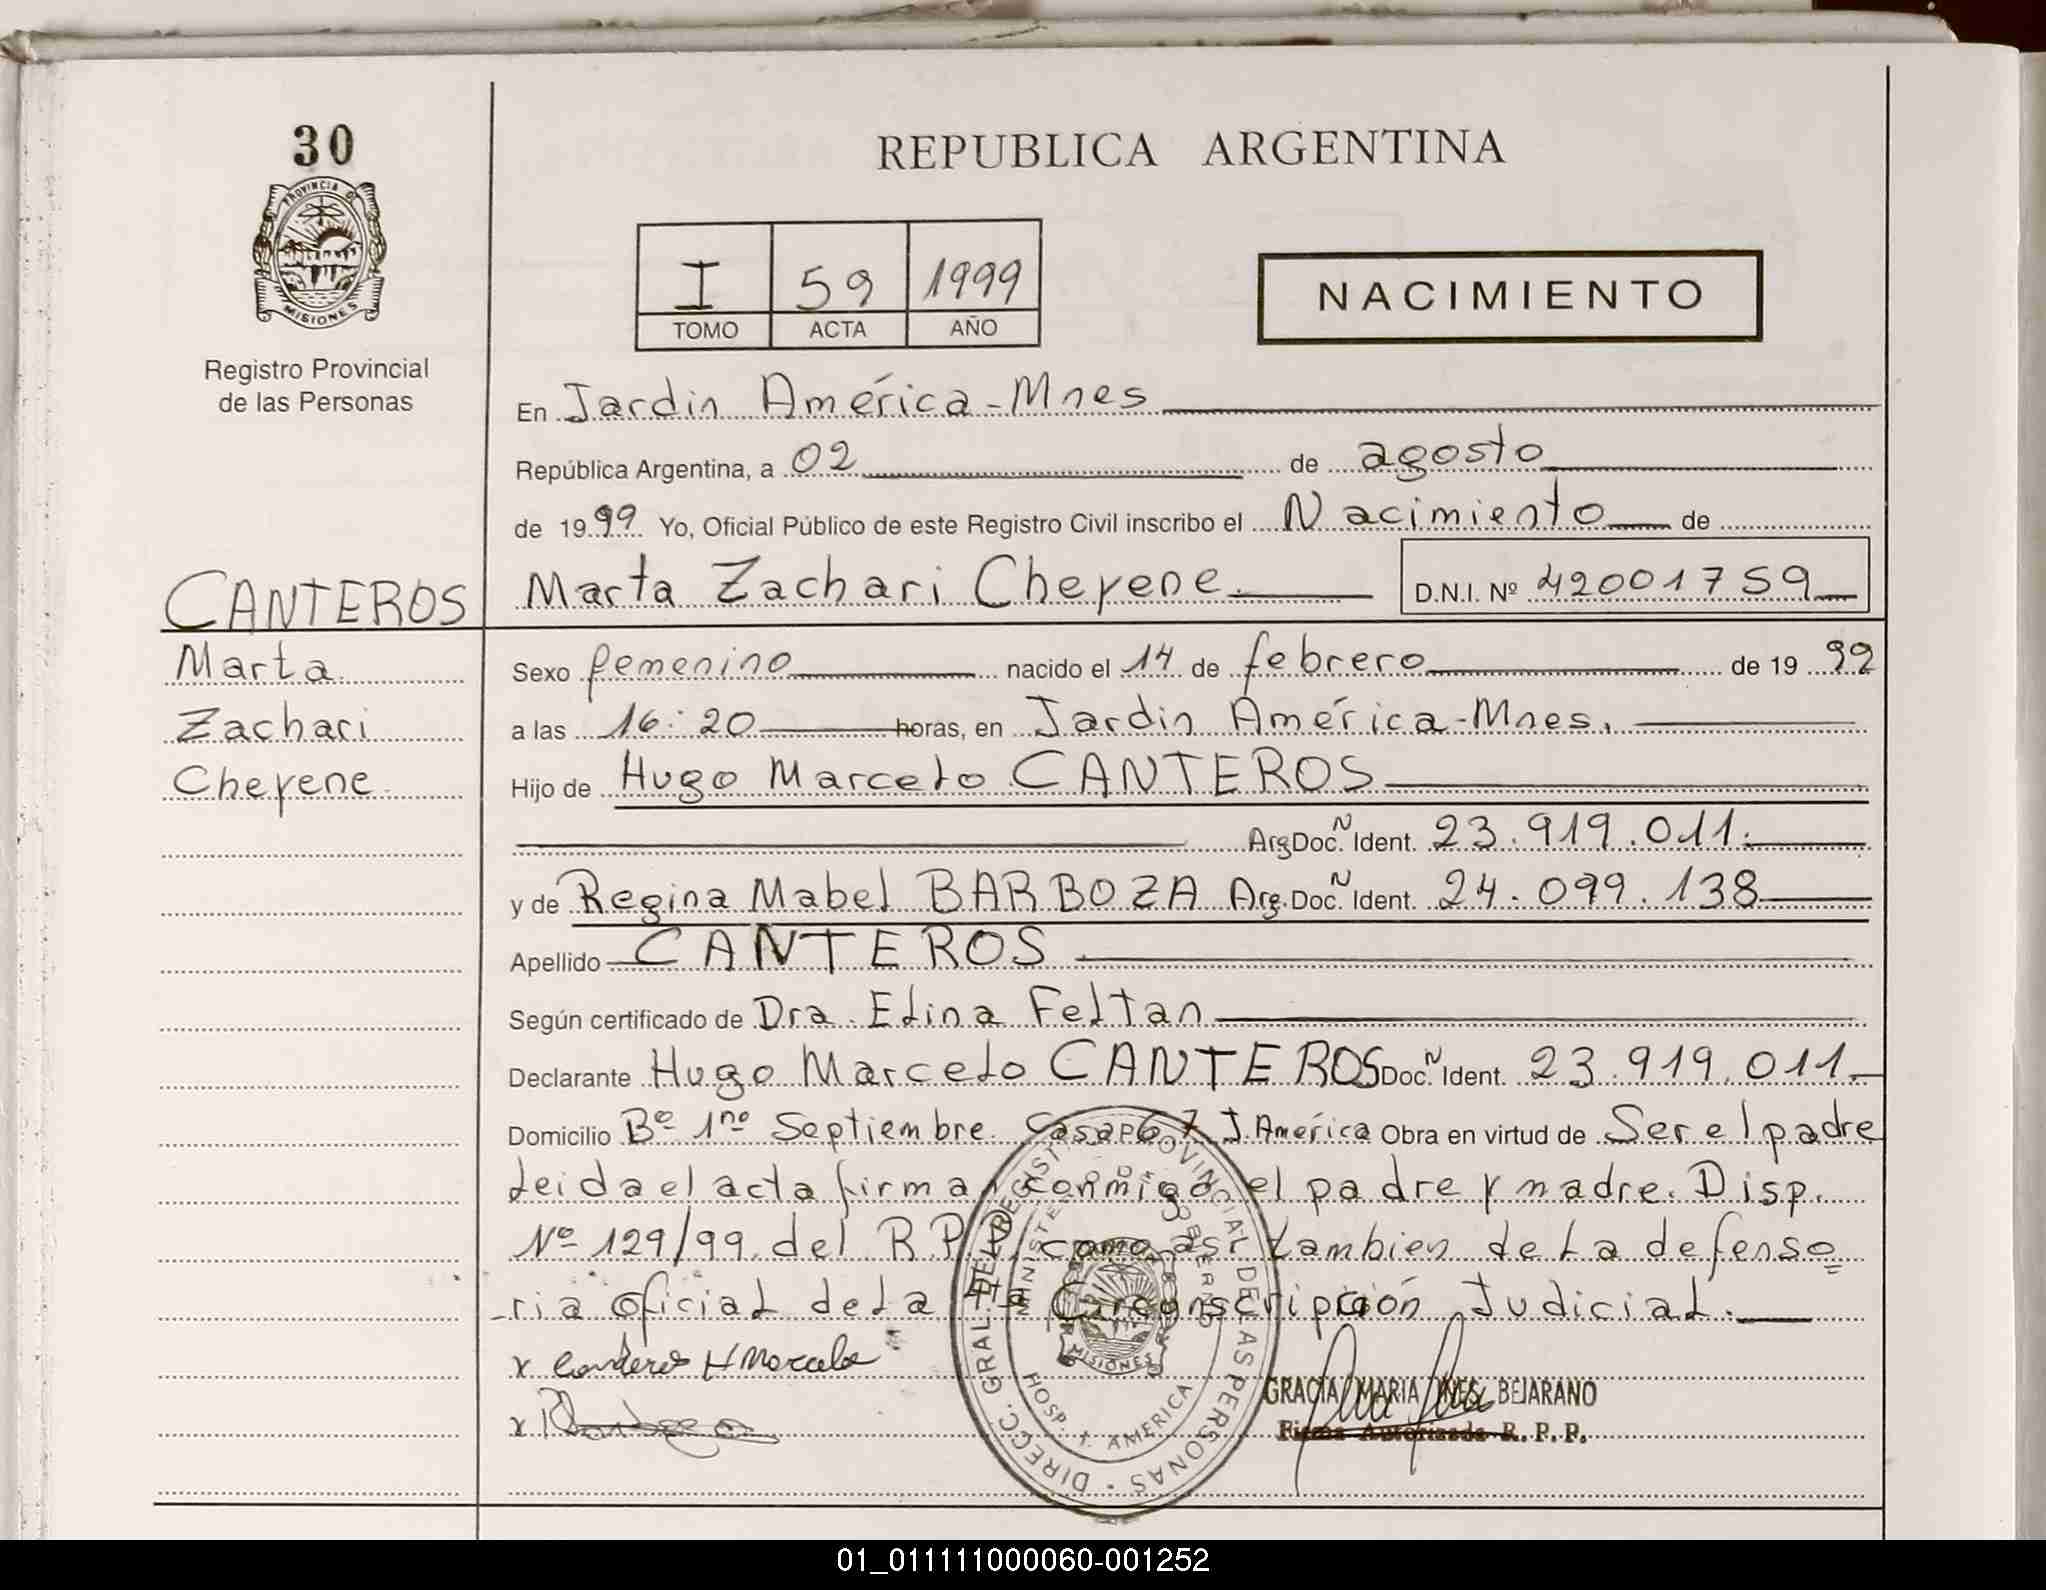 30
PROVINCIA DE
MISIONES
Registro Provincial
de las Personas
REPUBLICA ARGENTINA
I 59 1999
TOMO ACTA AÑO
NACIMIENTO
En Jardin América-Mnes
República Argentina, a 02 de agosto
de 1999 Yo, Oficial Público de este Registro Civil inscribo el Nacimiento de
CANTEROS
Marta
Zachari
Cheyene
Marta Zachari Cheyene. D.N.I. Nº 42001759
Sexo femenino nacido el 14 de febrero de 1999
a las 16:20 horas, en Jardin América-Mnes.
Hijo de Hugo Marcelo CANTEROS
Arg Doc. N Ident. 23.919.011.
y de Regina Mabel BARBOZA Arg. Doc. N Ident. 24.099.138
Apellido CANTEROS
Según certificado de Dra. Elina Feltan
Declarante Hugo Marcelo CANTEROS Doc. N Ident. 23.919.011.
Domicilio Bº 1ro Septiembre Casa 67 J. América Obra en virtud de Ser el padre
Leida el acta firma conmigo el padre y madre. Disp.
Nº 129/99 del R.P.P. como asi tambien de la defenso
ria oficial de la Circonscripción Judicial.
x Canteros H Marcelo
x
GRACIA MARIA INES BEJARANO
Firma Autorizada R. P. P.
DIRECC. GRAL. DEL REGIST. PROVINCIAL DE LAS PERSONAS
MINISTE DE GOBIERNO
MISIONES
HOSP. J. AMERICA
01_011111000060-001252